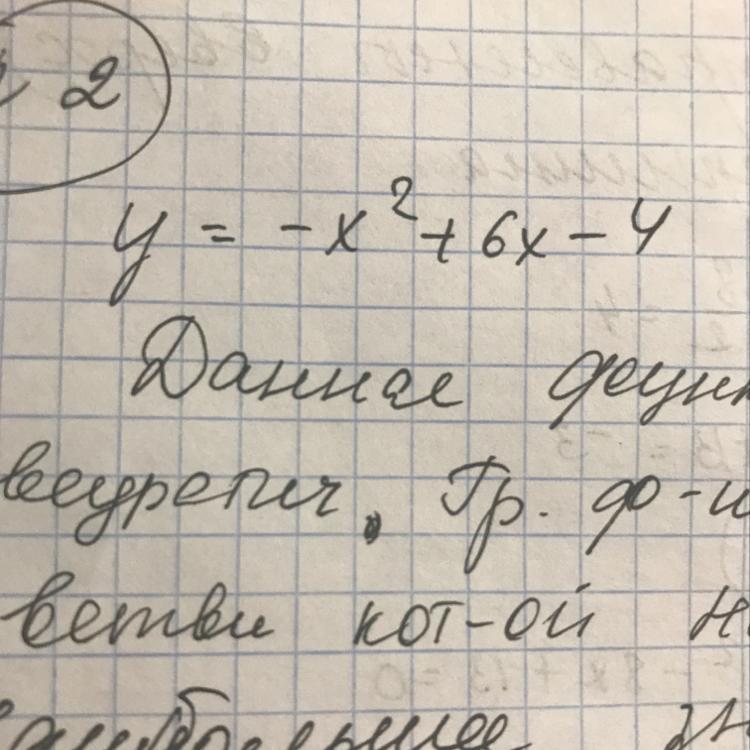 2
y = -x² + 6x - 4
Данная функ
квадратич. Гр. ф-и
ветви кот-ой н